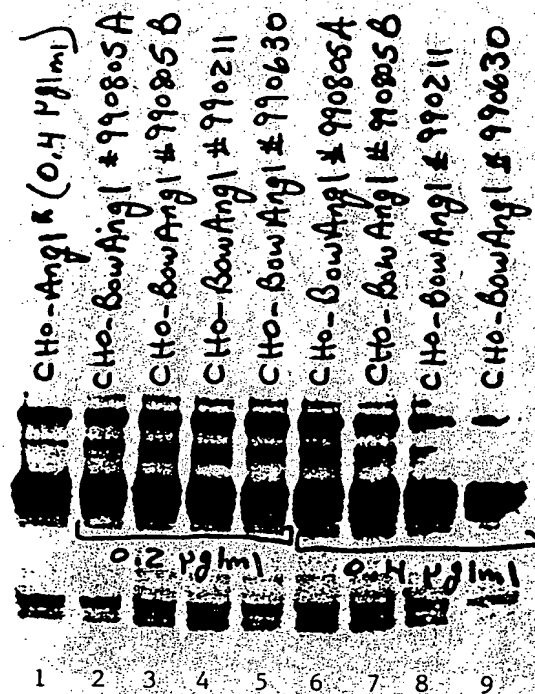 CHO-Ang1* (0.4 µg/ml)
CHO-BowAng1 # 990805A
CHO-BowAng1 # 990805B
CHO-BowAng1 # 990211
CHO-BowAng1 # 990630
CHO-BowAng1 # 990805A
CHO-BowAng1 # 990805B
CHO-BowAng1 # 990211
CHO-BowAng1 # 990630
0.2 µg/ml
0.4 µg/ml
1 2 3 4 5 6 7 8 9